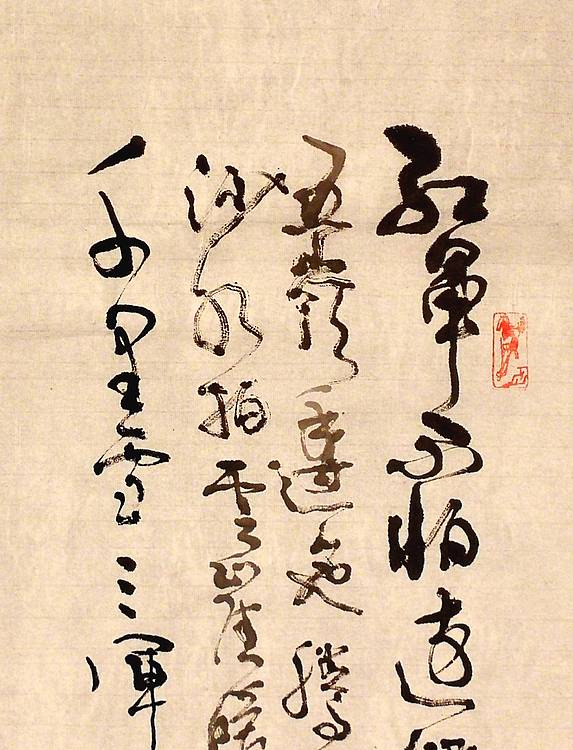 紅軍不怕遠
五嶺逶迤騰
沙水拍雲崖暖
千里雪三軍